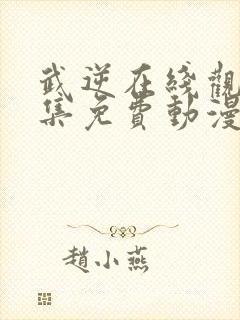 武逆在綫觀
集免費動漫
趙小燕